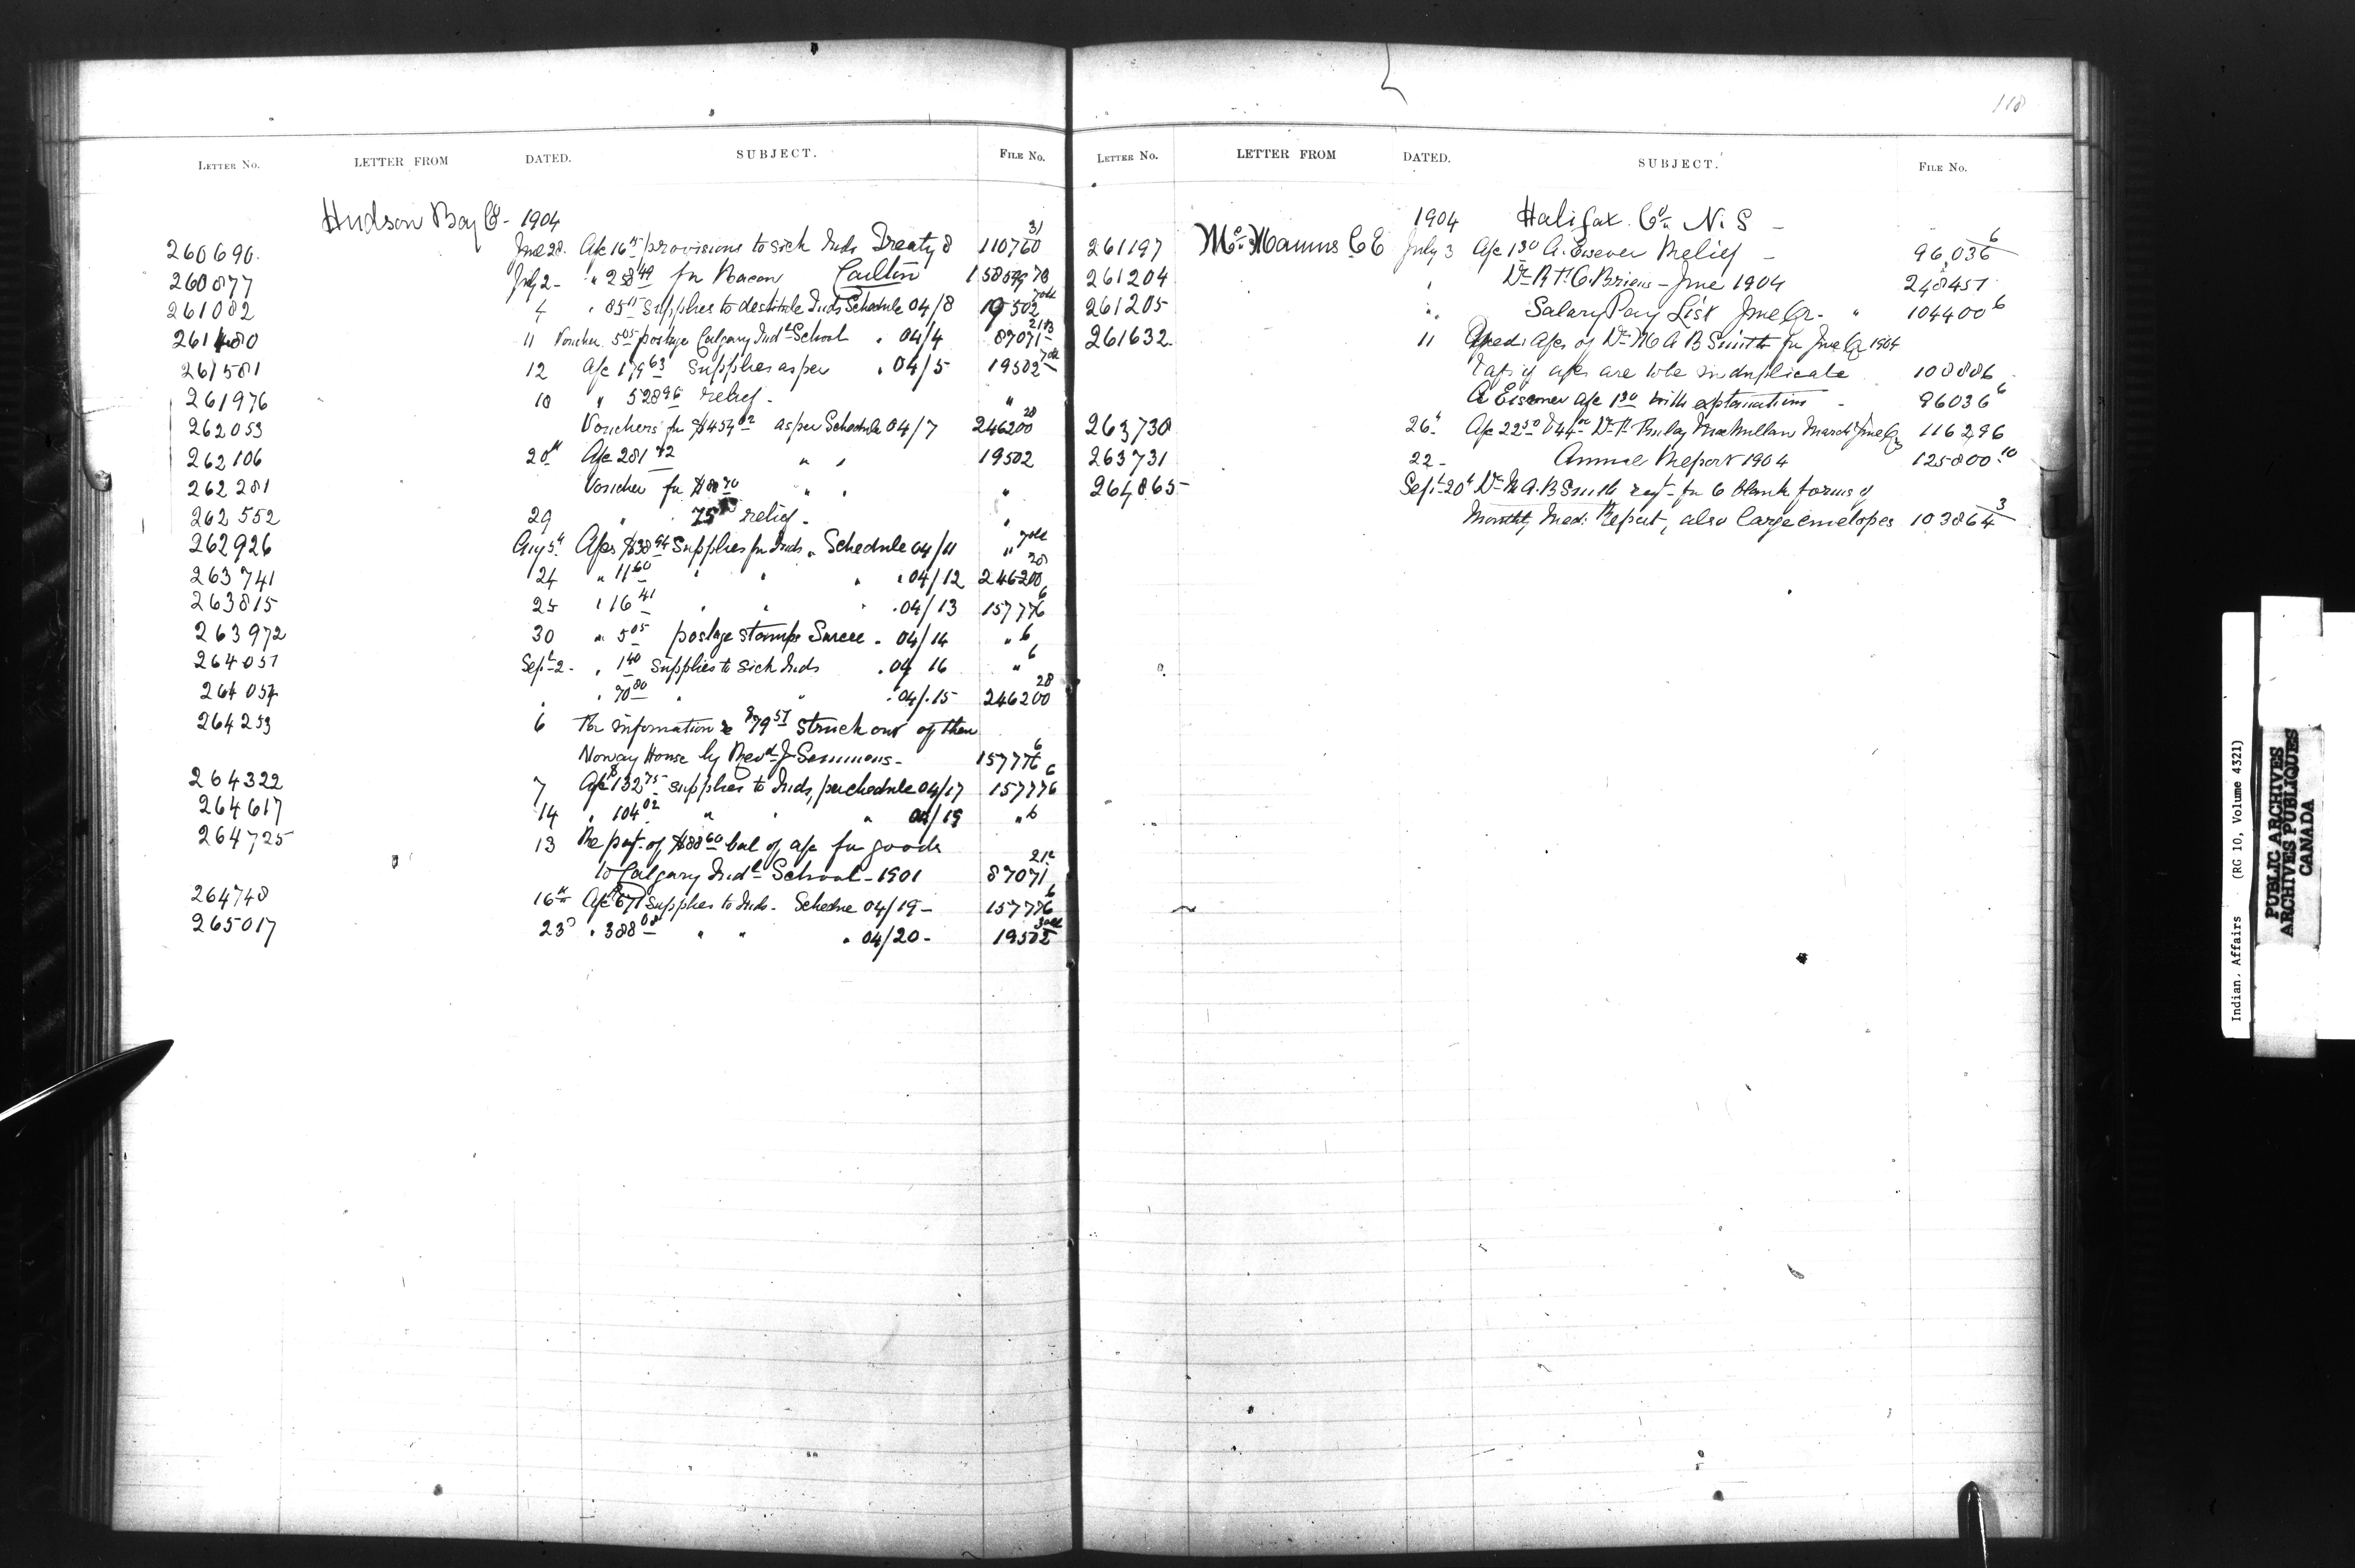 LETTER NO. LETTER FROM DATED. SUBJECT. FILE NO.
Hudson Bay Co - 1904
260690. June 28. A/c 16 provisions to sick Inds Treaty 8 110760 31
260877 July 2 - " 258 49 for Bacon Carlton
261082 4 " 85 Supplies to destitute Inds Schedule 04/8 19502
261480 11 Voucher 5 05 postage Calgary Indl School " 04/4 87071
261581 12 A/c 179 63 Supplies as per " 04/5 19502
261976 18 " 528 96 relief - "
262053 Vouchers for $459 02 as per Schedule 04/7 246200 28
262106 20th A/c 281 42 " " 19502
262281 Voucher for " " "
262552 29 " 75 relief - "
262926 Aug 5th A/cs $38 94 Supplies for Inds " Schedule 04/11 "
263741 24 " 11 60 " " " " 04/12 246200 28
263815 25 " 16 41 " " " " 04/13 157776 6
263972 30 " 5 05 postage stamps " 04/14 " 6
264051 Sept 2 - " 1 40 supplies to sick Inds " 04 16 " 6
264054 " " 70 80 " " " 04/15 246200 28
264253 6 For information re $79 51 struck out of
Norway House by Revd J Semmens - 157776 6
264322 7 A/c $132 75 supplies to Inds, per schedule 04/17 157776 6
264617 14 " 104 02 " " " 04/19 " 6
264725 13 Re pay't of $88 60 bal of a/c for goods
to Calgary Indl School - 1901 87071
264748 16th A/c supplies to Inds - Schedule 04/19 - 157776 6
265017 23d " 388 08 " " " 04/20 - 19502
118
LETTER NO. LETTER FROM DATED. SUBJECT. FILE NO.
1904 Halifax Co N. S -
261197 McManus C E July 3 A/c 1 30 A. Relief - 96,036 6
261204 " Dr - June 1904 248451
261205 " Salary Pay List June Qr - " 104400 6
261632 11 Med: A/cs of Dr A B Smith for June Qr 1904
if a/cs are to be in duplicate 108886
A Eisener a/c 1 30 with explanation - 96036 6
263730 26th A/c 22 50 & 44 00 Dr Finlay MacMillan March & June Qr 116296
263731 22 - Annual Report 1904 125800 10
264865 Sept 20th Dr A. B Smith for 6 blank forms of
Monthly Med: Report, also large envelopes 103864 3
Indian. Affairs (RG 10, Volume 4321)
PUBLIC ARCHIVES
ARCHIVES PUBLIQUES
CANADA